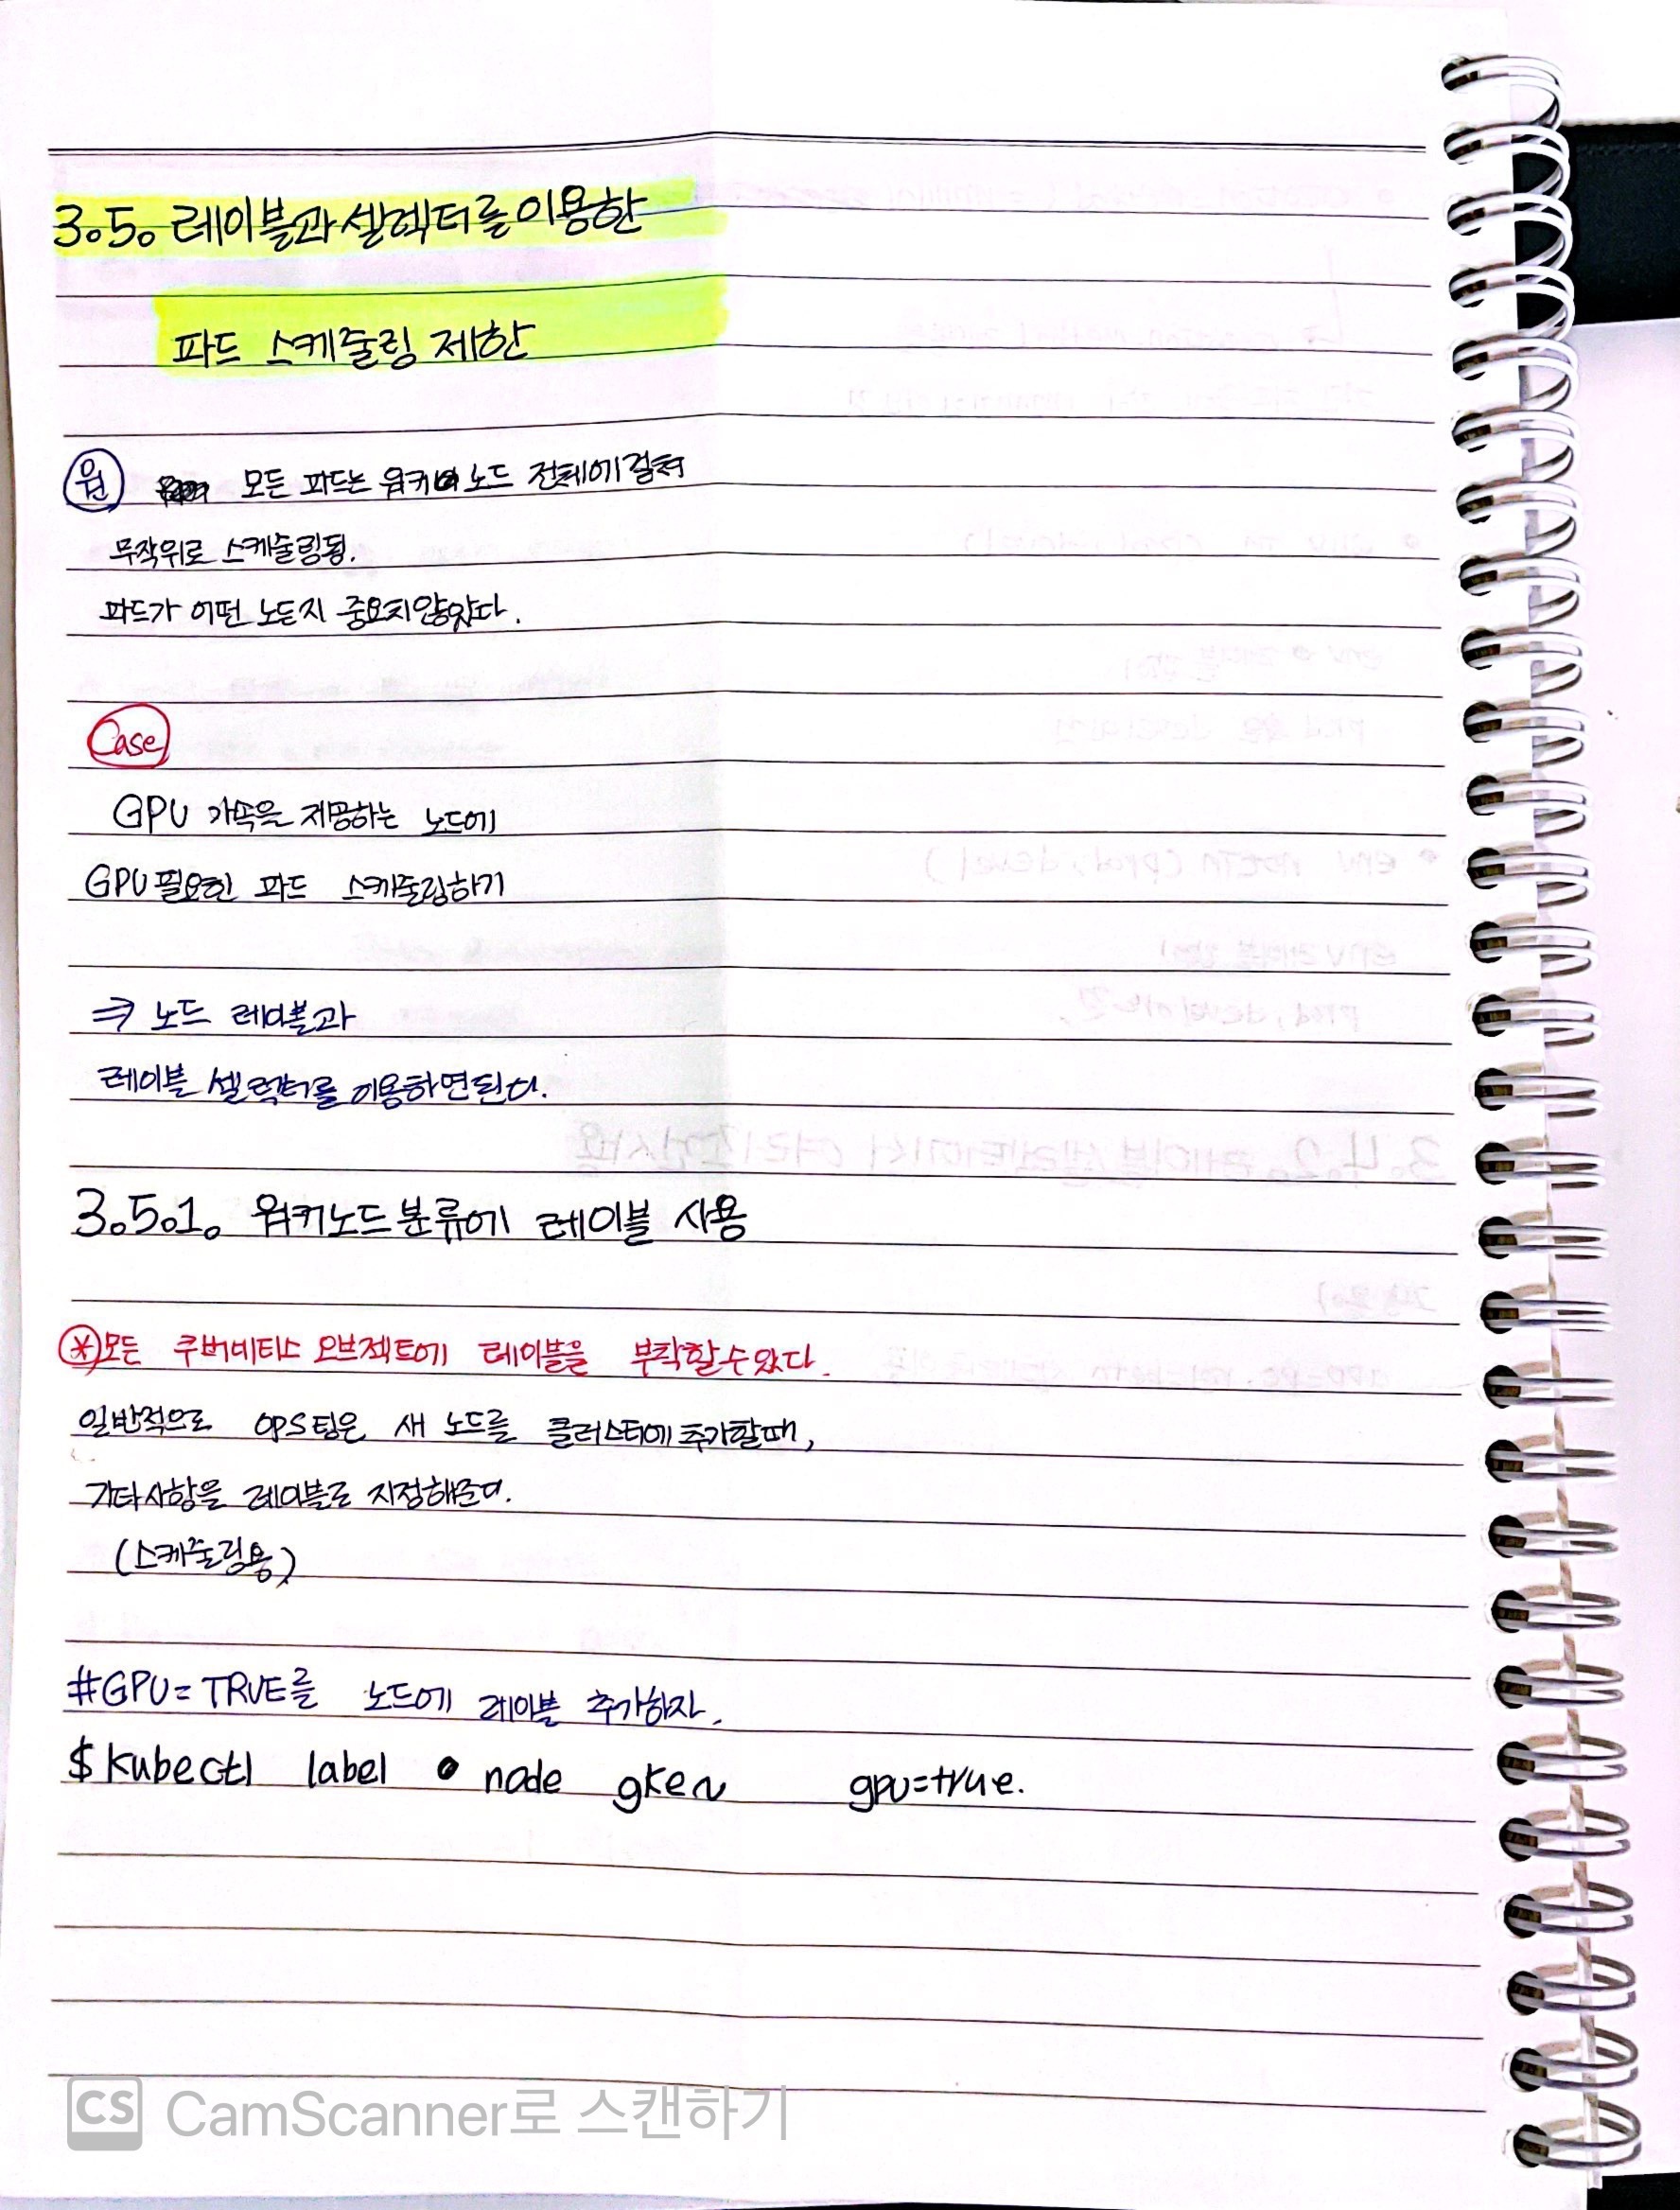 3.5. 레이블과 셀렉터를 이용한
파드 스케줄링 제한
원 모든 파드는 워커 노드 전체에 걸쳐
무작위로 스케줄링됨.
파드가 어떤 노든지 중요치않았다.
Case
GPU 가속을 제공하는 노드에
GPU 필요한 파드 스케줄링하기
⇒ 노드 레이블과
레이블 셀렉터를 이용하면된다.
3.5.1. 워커노드 분류에 레이블 사용
* 모든 쿠버네티스 오브젝트에 레이블을 부착할 수 있다.
일반적으로 OPS팀은 새 노드를 클러스터에 추가할때,
기타사항을 레이블로 지정해준다.
(스케줄링용)
#GPU=TRUE를 노드에 레이블 추가하자.
$ kubectl label node gke~ gpu=true.
CS CamScanner로 스캔하기